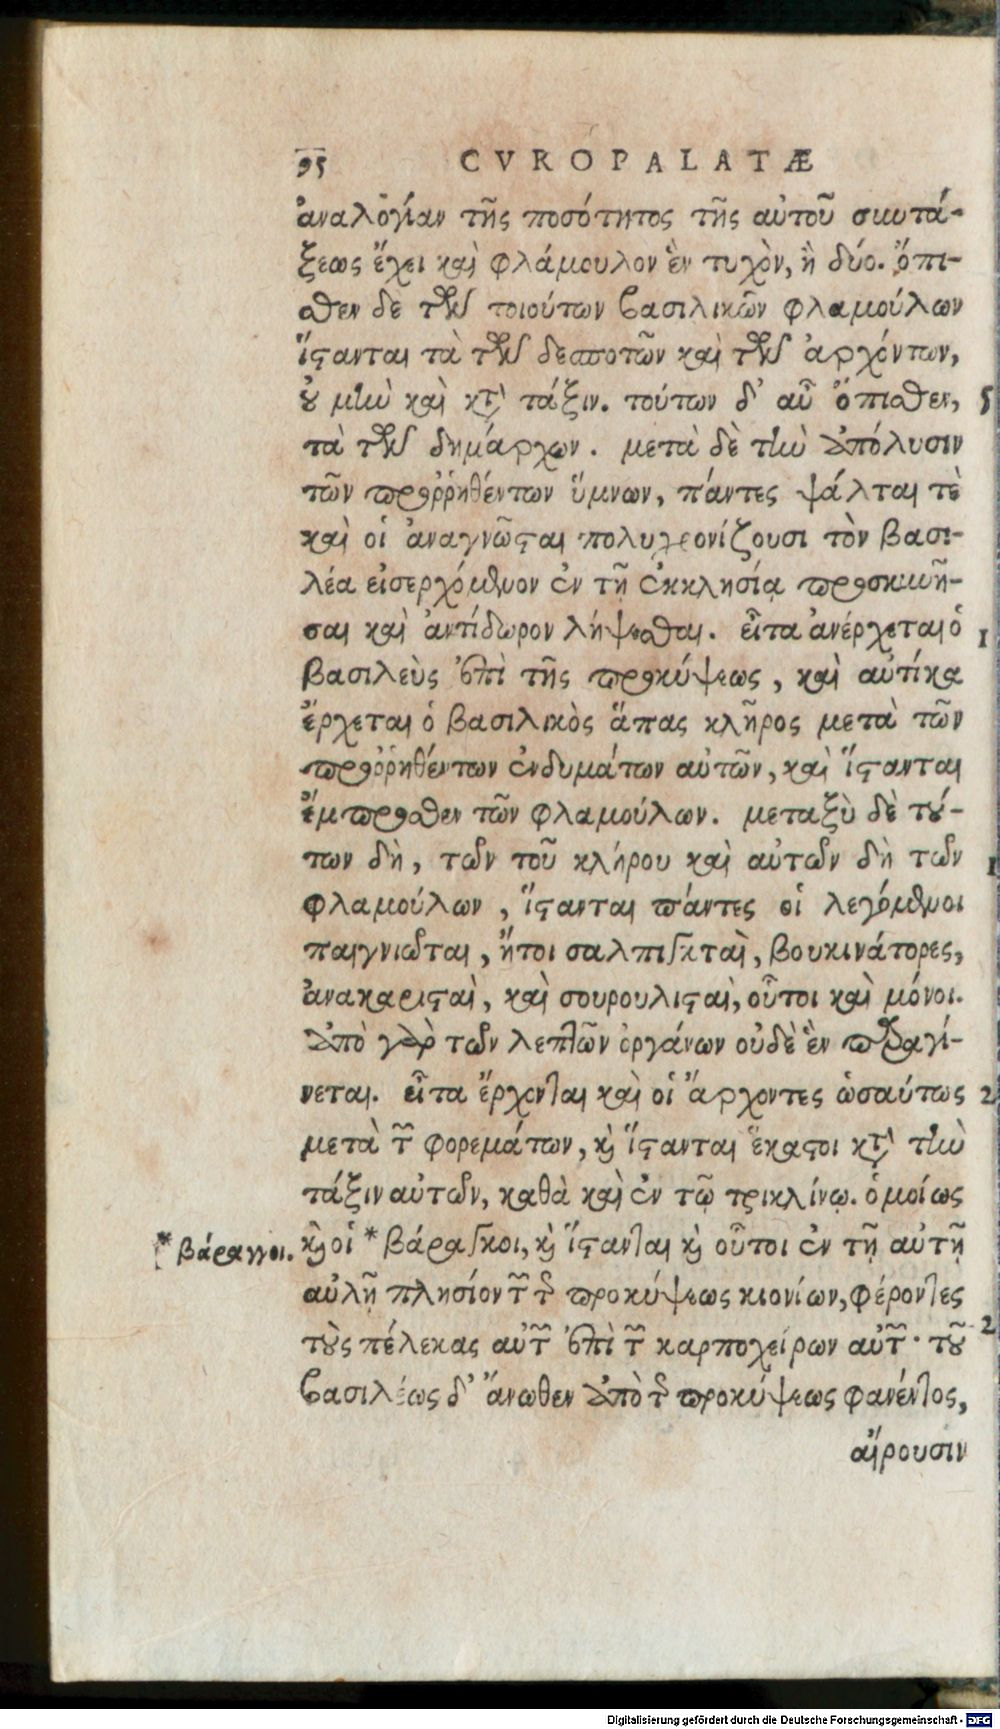 95 CVROPALATÆ
ἀναλογίαν τῆς ποσότητος τῆς αὐτοῦ συντά-
ξεως ἔχει καὶ φλάμουλον ἓν τυχὸν, ἢ δύο. ὄπι-
σθεν δὲ τῶν τοιούτων βασιλικῶν φλαμούλων
ἵστανται τὰ τῶν δεσποτῶν καὶ τῶν ἀρχόντων,
οὐ μὴν καὶ κατὰ τάξιν. τούτων δ' αὖ ὄπισθεν, 5
τὰ τῶν δημάρχων. μετὰ δὲ τὴν ἀπόλυσιν
τῶν προῤῥηθέντων ὕμνων, πάντες ψάλται τὲ
καὶ οἱ ἀναγνῶσται πολυχρονίζουσι τὸν βασι-
λέα εἰσερχόμενον ἐν τῇ ἐκκλησίᾳ προσκυνῆ-
σαι καὶ ἀντίδωρον λήψεσθαι. εἶτα ἀνέρχεται ὁ 1
βασιλεὺς ἐπὶ τῆς προκύψεως, καὶ αὐτίκα
ἔρχεται ὁ βασιλικὸς ἅπας κλῆρος μετὰ τῶν
προῤῥηθέντων ἐνδυμάτων αὐτῶν, καὶ ἵστανται
ἔμπροσθεν τῶν φλαμούλων. μεταξὺ δὲ τού-
των δὴ, τῶν τοῦ κλήρου καὶ αὐτῶν δὴ τῶν 1
φλαμούλων, ἵστανται πάντες οἱ λεγόμενοι
παιγνιῶται, ἤτοι σαλπιγκταὶ, βουκινάτορες,
ἀνακαρισταὶ, καὶ σουρουλισταὶ, οὗτοι καὶ μόνοι.
ἀπὸ γὰρ τῶν λεπτῶν ὀργάνων οὐδὲ ἓν παραγί-
νεται. εἶτα ἔρχονται καὶ οἱ ἄρχοντες ὡσαύτως 2
μετὰ τῶν φορεμάτων, καὶ ἵστανται ἕκαστοι κατὰ τὴν
τάξιν αὐτῶν, καθὰ καὶ ἐν τῷ τρικλίνῳ. ὁμοίως
καὶ οἱ * βάραγκοι, καὶ ἵστανται καὶ οὗτοι ἐν τῇ αὐτῇ
* βάραγγοι.
αὐλῇ πλησίον τῶν τῆς προκύψεως κιονίων, φέροντες
τοὺς πέλεκας αὐτῶν ἐπὶ τῶν καρποχείρων αὐτῶν· τοῦ 2
βασιλέως δ' ἄνωθεν ἀπὸ τῆς προκύψεως φανέντος,
αἴρουσιν
Digitalisierung gefördert durch die Deutsche Forschungsgemeinschaft - DFG